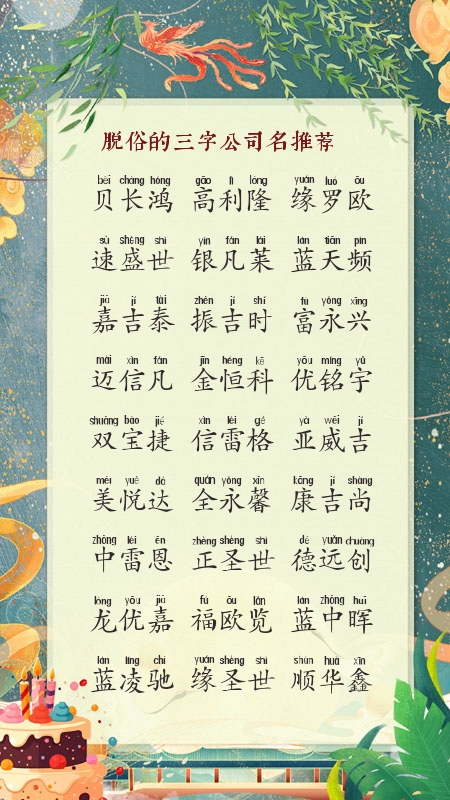 脱俗的三字公司名推荐
bèi cháng hóng gāo lì lóng yuán luó ōu
贝长鸿 高利隆 缘罗欧
sù shèng shì yín fán lái lán tiān pín
速盛世 银凡莱 蓝天频
jiā jí tài zhèn jí shí fù yǒng xīng
嘉吉泰 振吉时 富永兴
mài xìn fán jīn héng kē yōu míng yǔ
迈信凡 金恒科 优铭宇
shuāng bǎo jié xìn léi gé yà wēi jí
双宝捷 信雷格 亚威吉
měi yuè dá quán yǒng xīn kāng jí shàng
美悦达 全永馨 康吉尚
zhōng léi ēn zhèng shèng shì dé yuǎn chuàng
中雷恩 正圣世 德远创
lóng yōu jiā fú ōu lǎn lán zhōng huī
龙优嘉 福欧览 蓝中晖
lán líng chí yuán shèng shì shùn huá xīn
蓝凌驰 缘圣世 顺华鑫